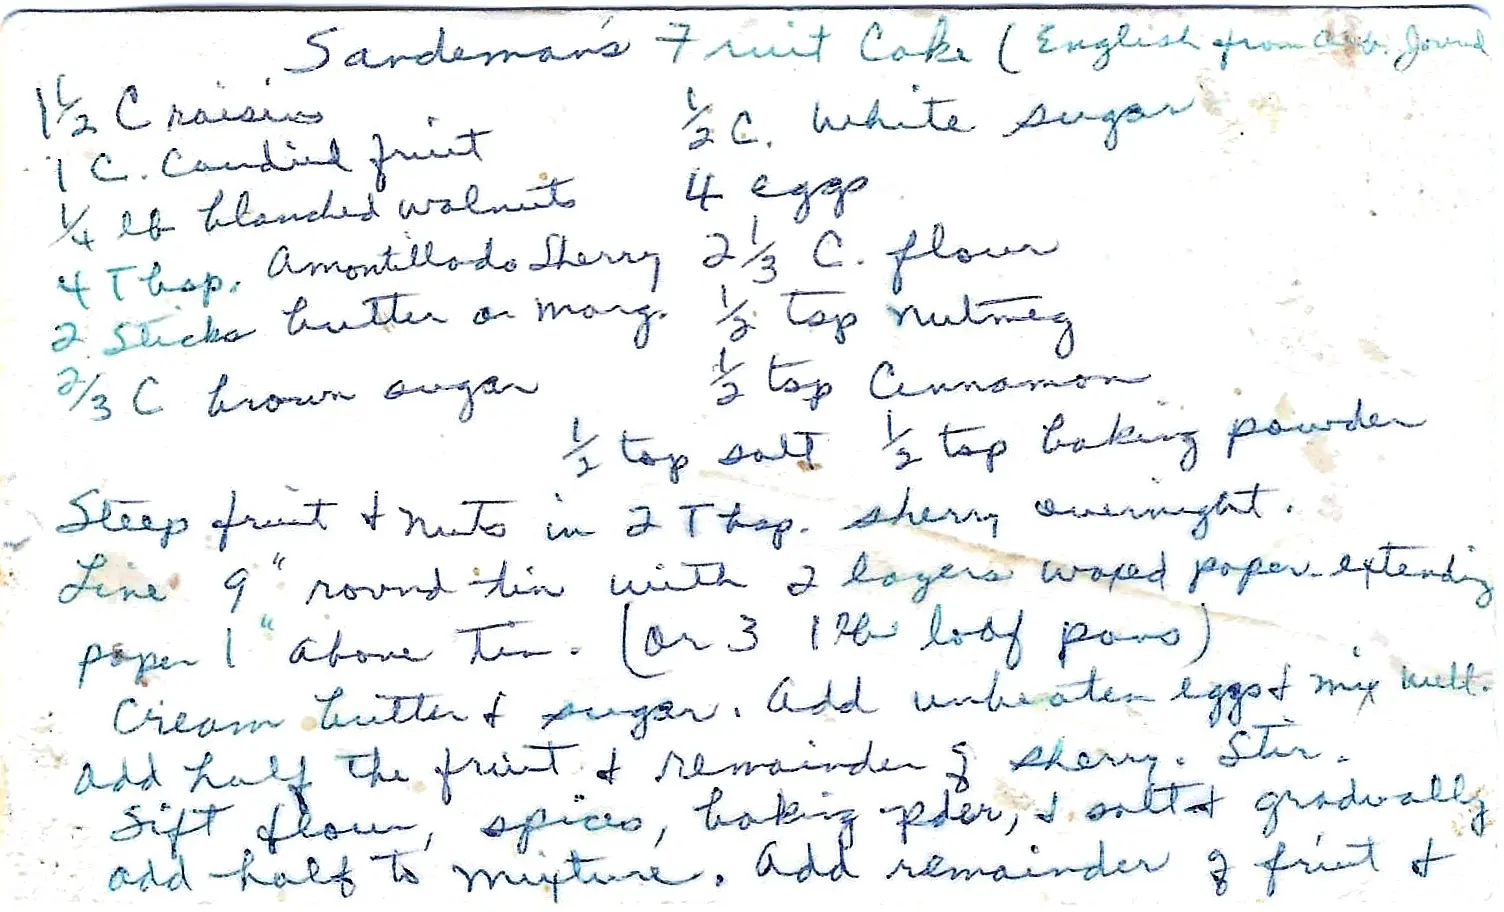 Sandeman's Fruit Cake (English from Journal
1 1/2 C raisins
1 C. Candied fruit
1/4 lb blanched walnuts
4 Tbsp. Amontillado Sherry
2 Sticks butter or marg.
2/3 C brown sugar
1/2 C. White sugar
4 eggs
2 1/3 C. flour
1/2 tsp Nutmeg
1/2 tsp Cinnamon
1/2 tsp salt 1/2 tsp baking powder
Steep fruit & nuts in 2 Tbsp. sherry overnight.
Line 9" round tin with 2 layers waxed paper-extending
paper 1" above tin. (Or 3 1 lb loaf pans)
Cream butter & sugar. Add unbeaten eggs & mix well.
Add half the fruit & remainder of sherry. Stir.
Sift flour, spices, baking pder, & salt & gradually
add half to mixture. Add remainder of fruit &